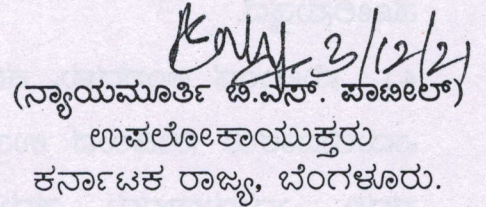 3/12/21
(ನ್ಯಾಯಮೂರ್ತಿ ಬಿ.ಎಸ್. ಪಾಟೀಲ್)
ಉಪಲೋಕಾಯುಕ್ತರು
ಕರ್ನಾಟಕ ರಾಜ್ಯ, ಬೆಂಗಳೂರು.